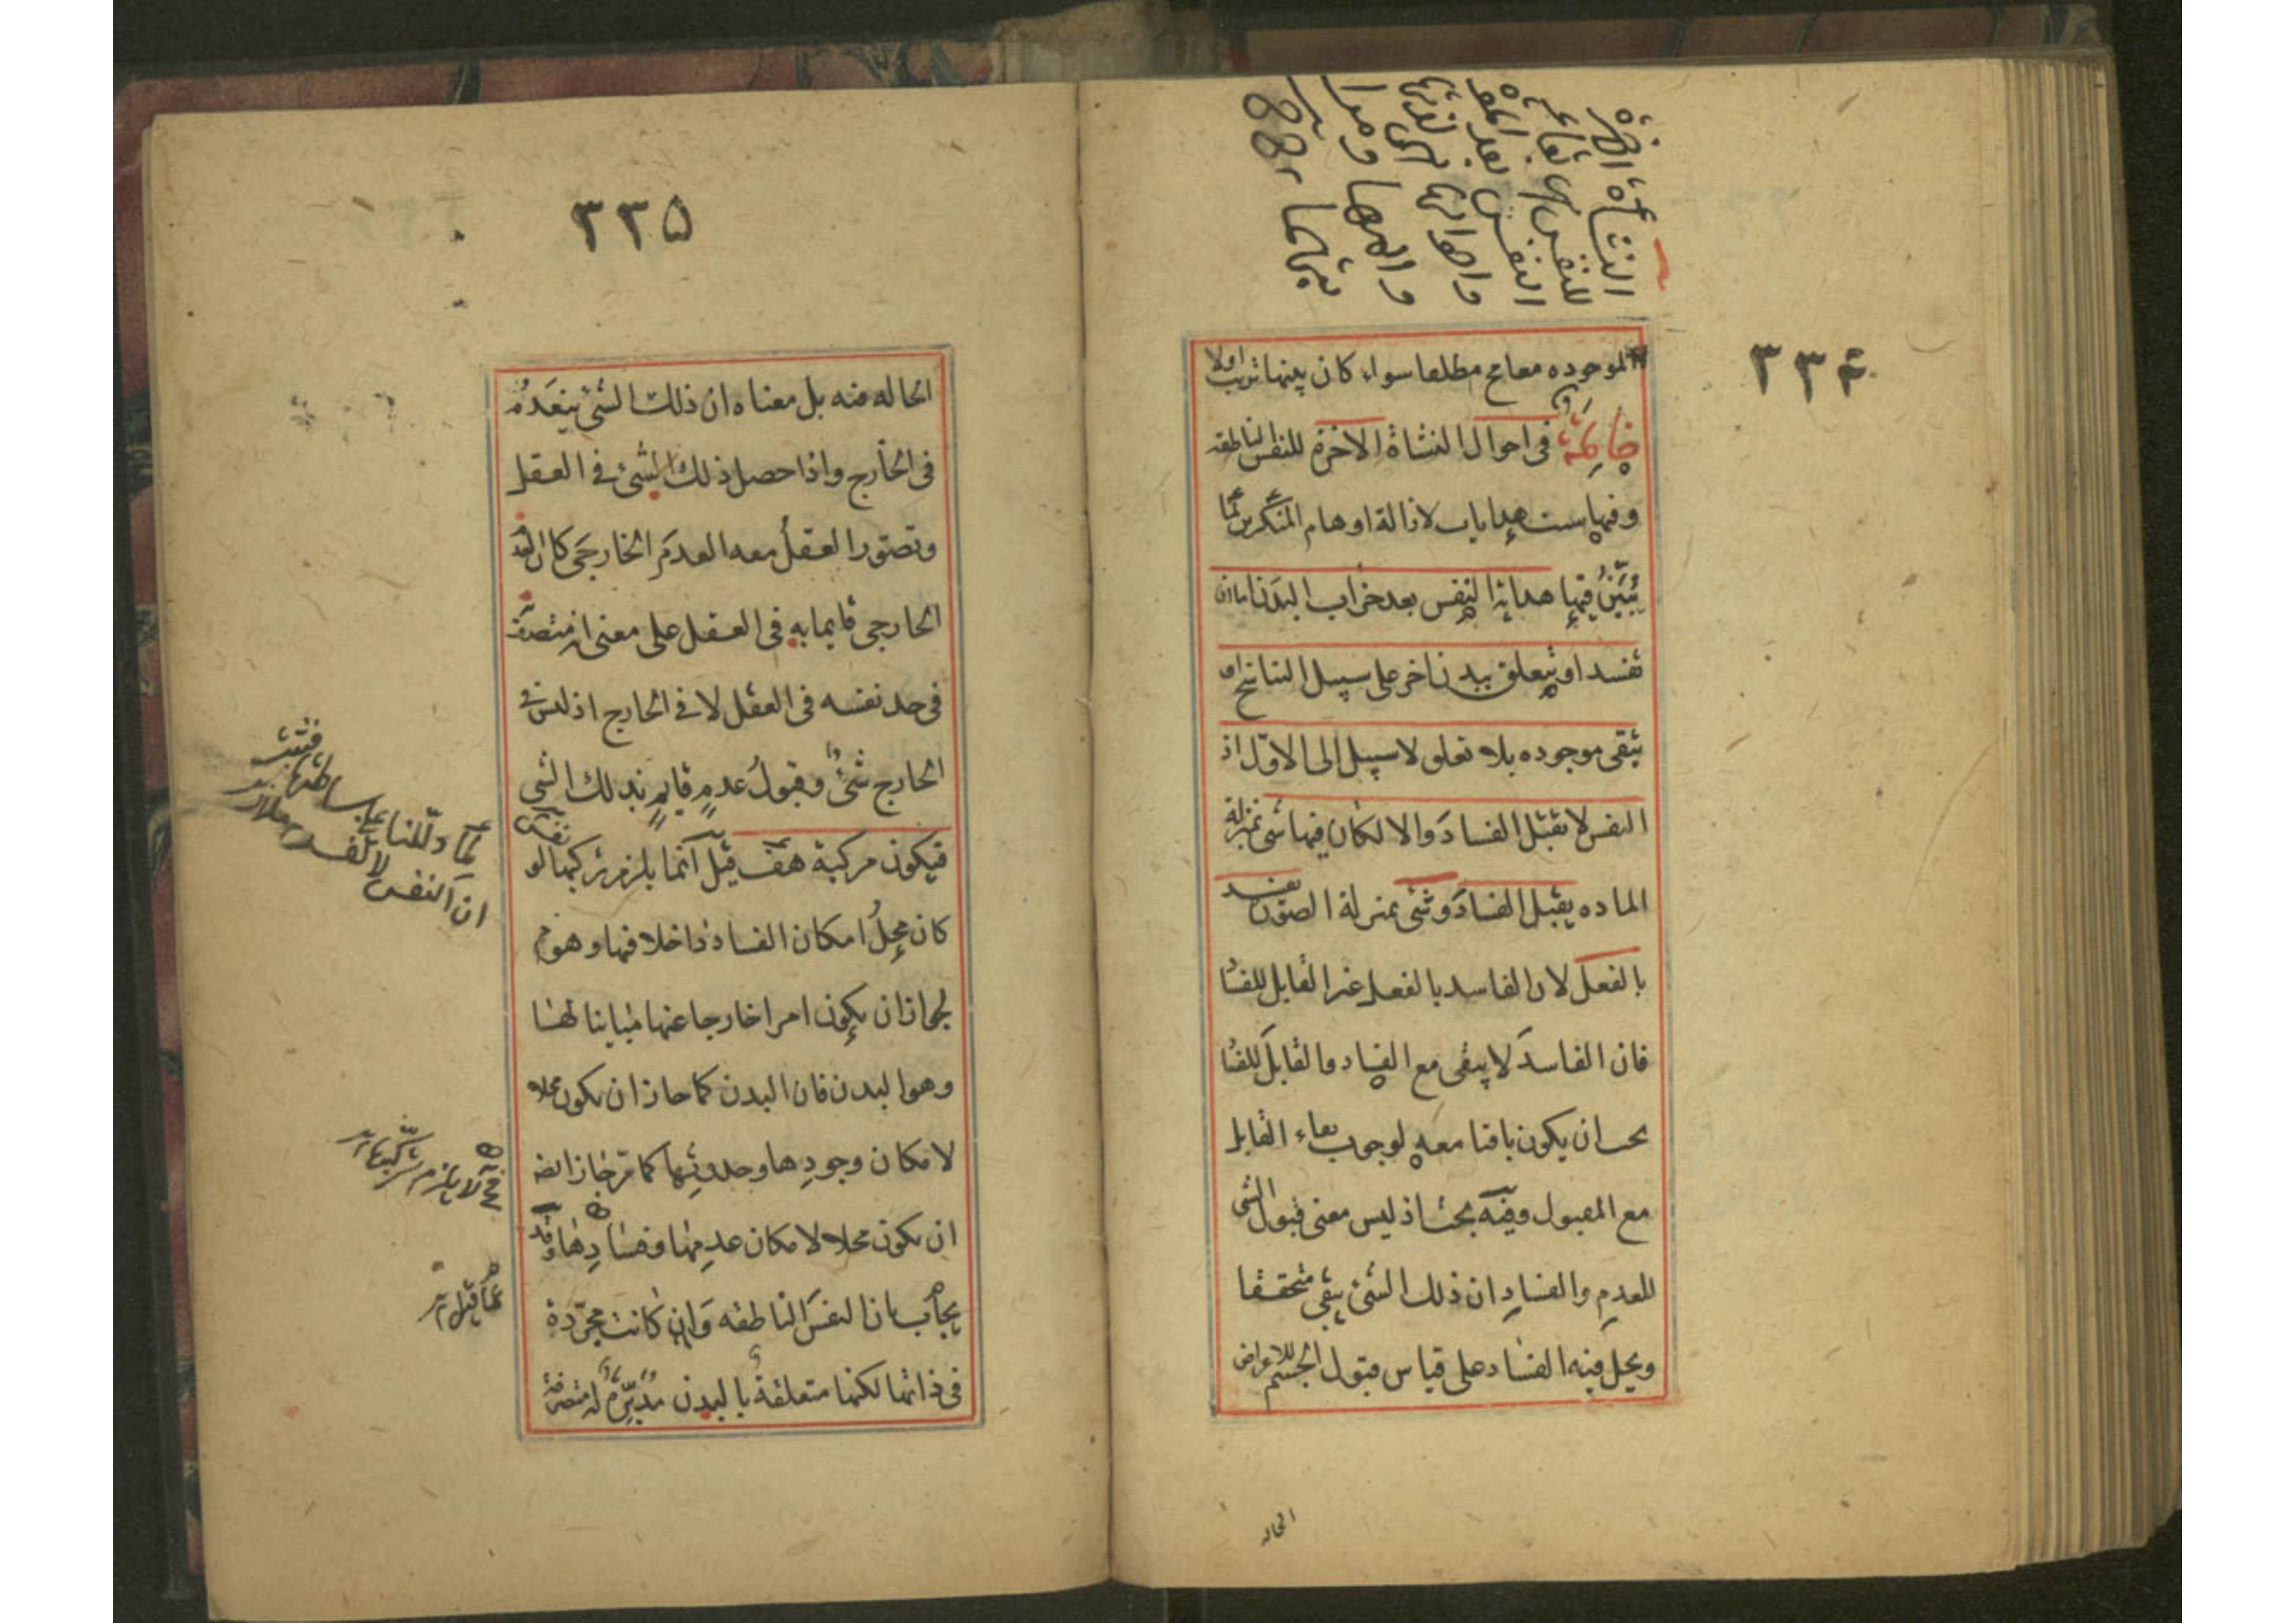 ٣٣٤
النشأة الاخرة
الموجوده معا ام مطلقا سواء كان بينها ترتب اولا
خاتمة فى احوال النشاة الاخرة للنفس الناطقه
وفيها ست هدايات لازالة اوهام المنكرين لما
يبين فيها هداية النفس بعد خراب البدن اما ان
تفسد او يتعلق ببدن اخر على سبيل التناسخ او
يبقى موجوده بلا تعلق لا سبيل الى الاول اذ
النفس لا يقبل الفساد والا لكان فيها شئ بمنزلة
الماده يقبل الفساد وشئ بمنزلة الصورة يفسد
بالفعل لان الفاسد بالفعل غير القابل للفساد
فان الفاسد لا يبقى مع الفساد والقابل للفساد
يجب ان يكون باقيا معه لوجوب بقاء القابل
مع المقبول وفيه بحث اذ ليس معنى قبول الشئ
للعدم والفساد ان ذلك الشئ يبقى متحققا
ويحل فيه الفساد على قياس قبول الجسم للاعراض
الحاله
٣٣٥
الحاله فيه بل معناه ان ذلك الشئ ينعدم
فى الخارج واذا حصل ذلك الشئ فى العقل
وتصور العقل معه العدم الخارجى كان العدم
الخارجى قايما به فى العقل على معنى انه متصف
فى حد نفسه فى العقل لا فى الخارج اذ ليس فى
الخارج شئ وقبول عدم قايم بذلك الشئ
فيكون مركبة هف قيل انما يلزم تركبها لو
كان محل امكان الفساد داخلا فيها وهو مم
لجواز ان يكون امرا خارجا عنها مباينا لها
وهو البدن فان البدن كما جاز ان يكون محلا
لامكان وجودها وحدوثها كما مر جاز ايضا
ان يكون محلا لامكان عدمها وفسادها وقد
يجاب بان النفس الناطقه وان كانت مجردة
فى ذاتها لكنها متعلقة بالبدن مدبرة له متصرفة
ان النفس لا تفسد
فح لا يلزم تركبها
عما قيل